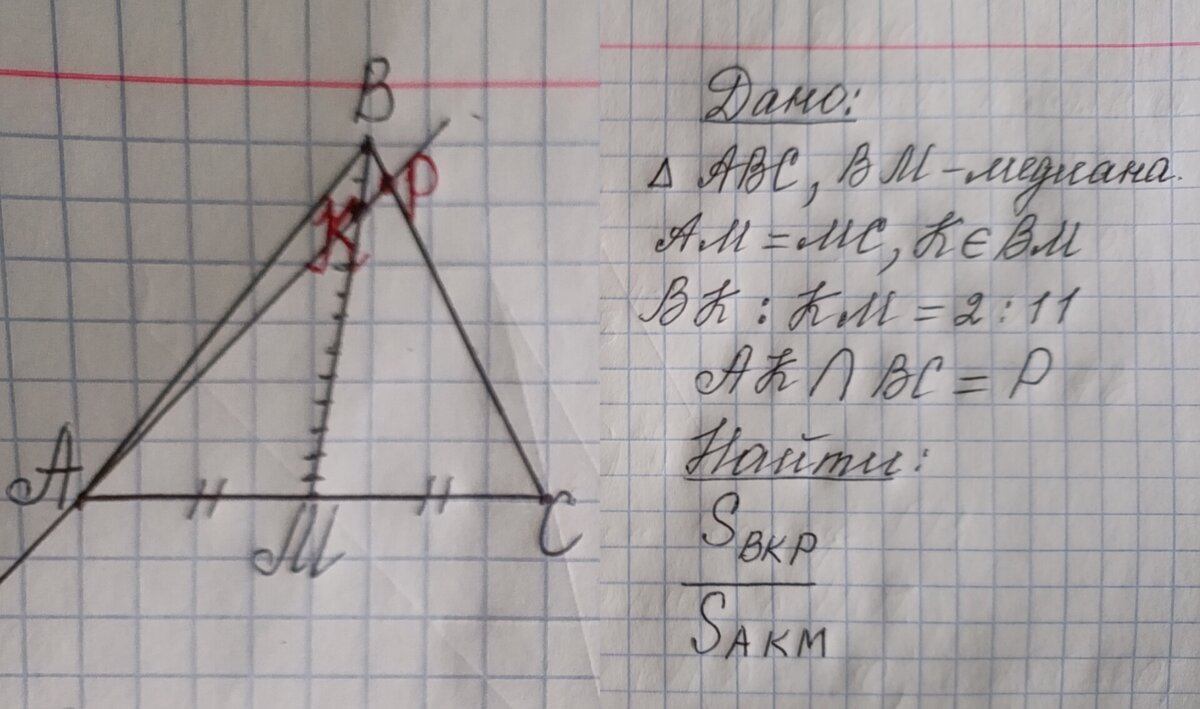 B
P
K
A
M
C
Дано:
Δ ABC, BM - медиана.
AM = MC, K ∈ BM
BK : KM = 2 : 11
AK ∩ BC = P
Найти:
S BKP
S AKM